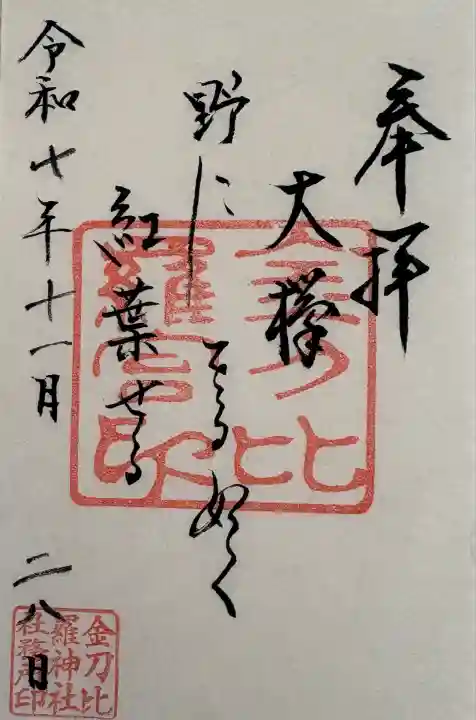 奉拝
大欅
野に る如く
紅葉せる
令和七年十一月二八日
金刀比
羅宮印
金刀比
羅神社
社務所印